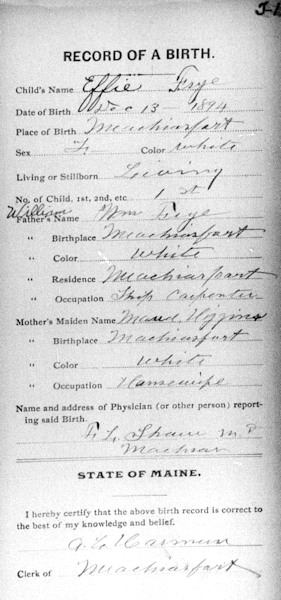 RECORD OF A BIRTH.
Child's Name Effie Frye
Date of Birth Dec 13 - 1894
Place of Birth Machiasport
Sex F Color White
Living or Stillborn Living
No. of Child, 1st, 2nd, etc 1 st
William
Father's Name Wm Frye
" Birthplace Machiasport
" Color White
" Residence Machiasport
" Occupation Ship Carpenter
Mother's Maiden Name Maud
" Birthplace Machiasport
" Color White
" Occupation Housewife
Name and address of Physician (or other person) report-
ing said Birth.
F. L. Shaw M.D
Machias
STATE OF MAINE.
I hereby certify that the above birth record is correct to
the best of my knowledge and belief.
Clerk of Machiasport